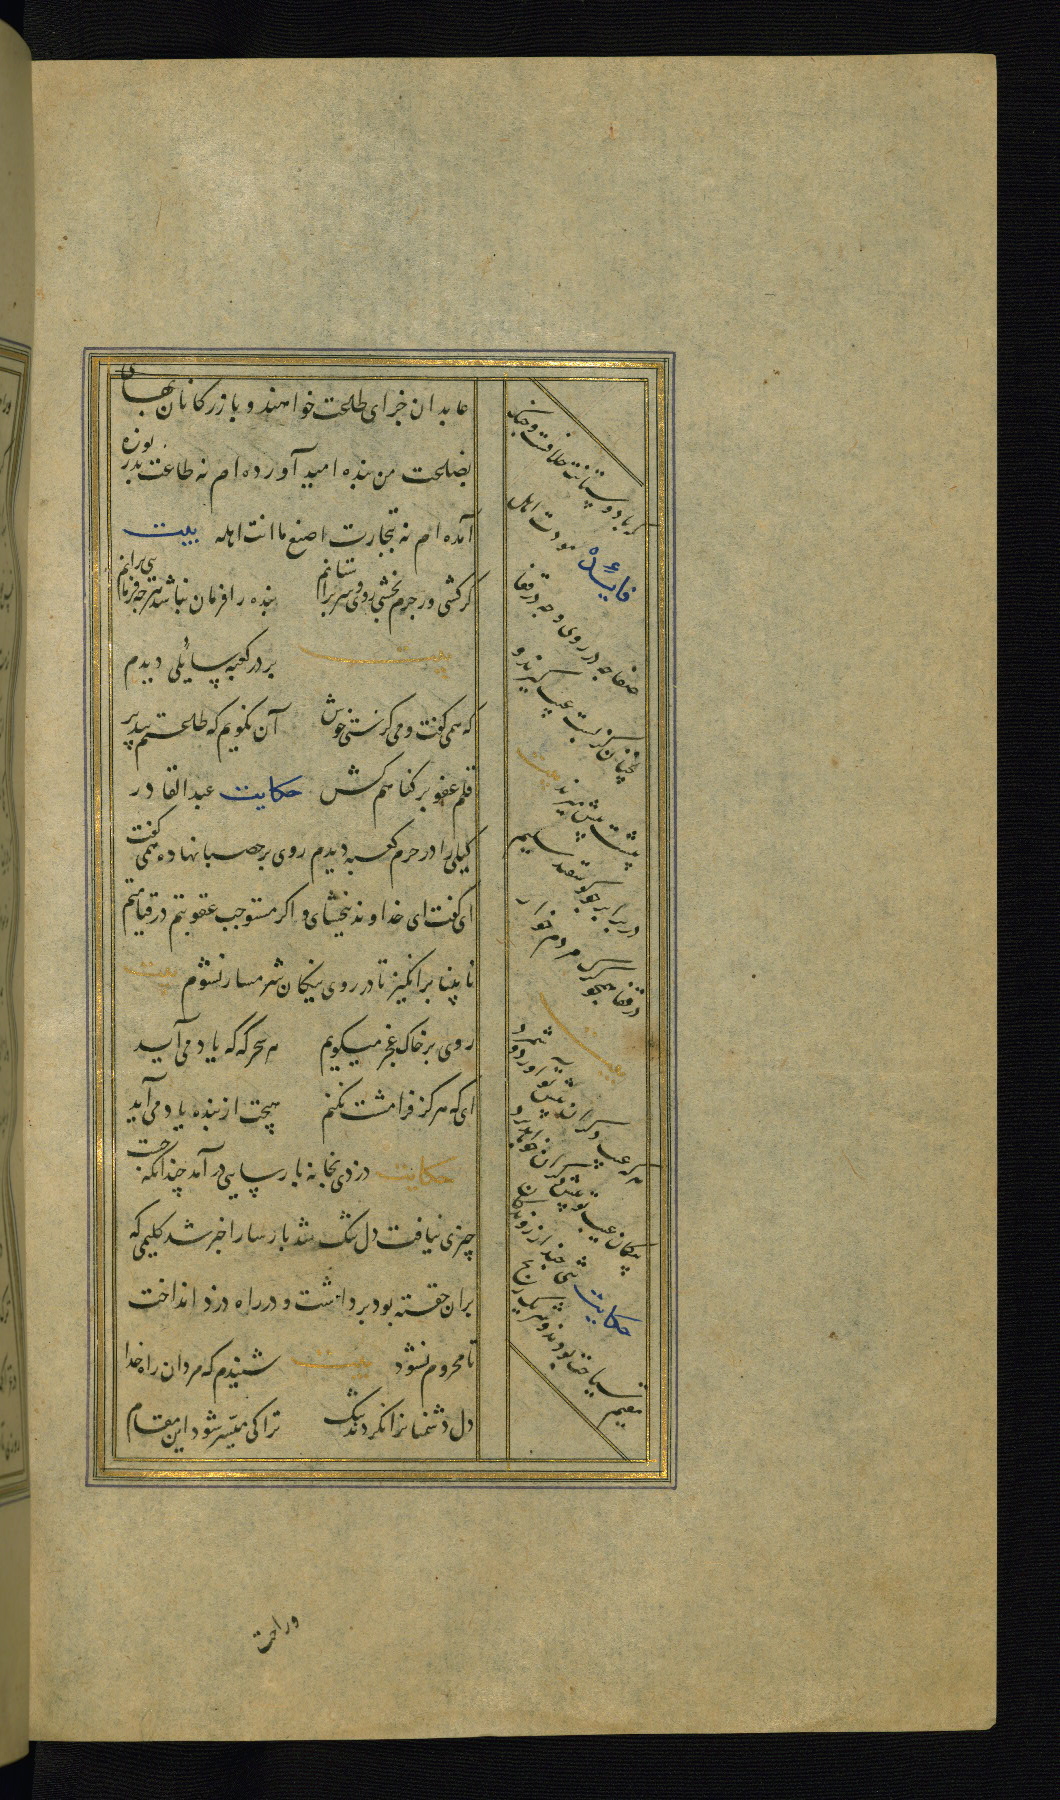 عابدان جزای طاعت خواهند و بازرگانان بهای
بضاعت من بنده امید آورده‌ام نه طاعت بدریوزه
آمده‌ام نه بتجارت اصنع ما انت اهله بیت
گر کشی ور جرم بخشی روی و سر بر آستانم بنده را فرمان نباشد هرچه فرمائی بر آنم
بیت بر در کعبه سایلی دیدم
که همی گفت و می گرستی خوش آن نگویم که طاعتم بپذیر
قلم عفو بر گناهم کش حکایت عبد القادر
گیلی را در حرم کعبه دیدم روی بر حصبا نهاده همی گفت
ای خداوند ببخشای و اگر مستوجب عقوبتم در قیامتم
نابینا برانگیز تا در روی نیکان شرمسار نشوم بیت
روی بر خاک عجز میگویم هر سحرگه که یاد می‌آید
ای که هرگز فرامشت نکنم هیچت از بنده یاد می‌آید
حکایت دزدی بخانه پارسایی در آمد چندانکه جست
چیزی نیافت دل تنگ شد پارسا را خبر شد گلیمی که
بر آن خفته بود برداشت و در راه دزد انداخت
تا محروم نشود بیت شنیدم که مردان راه خدا
دل دشمنانرا نکردند تنگ ترا کی میسر شود این مقام
که با دوستانت خلافست و جنگ
فایده مودت اهل
صفا چه در روی و چه در قفا
نچنان کز پست عیب گیرند و
پیشت بیش میرند بیت
در برابر چو گوسفند سلیم
در قفا همچو گرگ مردم خوار
بیت
هر که عیب دگران پیش تو آورد و شمرد
بیگمان عیب تو پیش دگران خواهد برد
حکایت تنی چند از روندگان
متفق سیاحت بودند و شریک رنج
و راحت